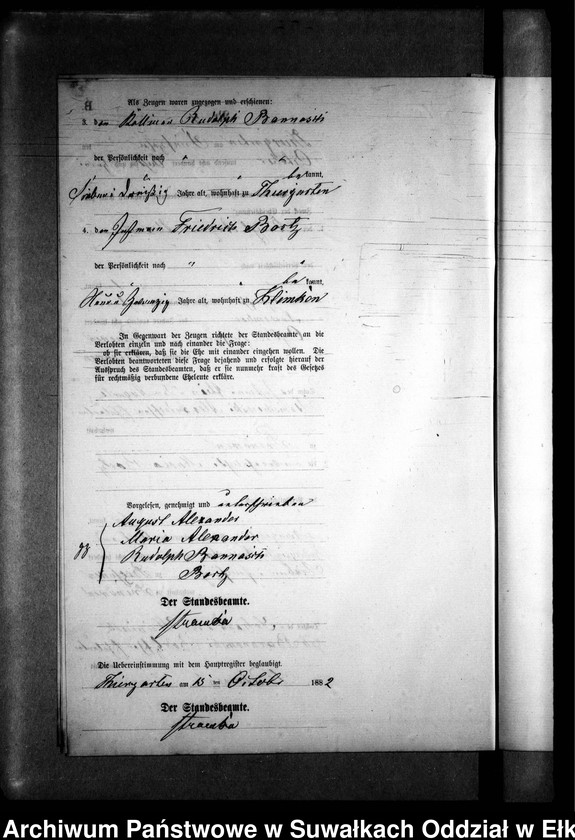 B
Als Zeugen waren zugezogen und erschienen:
3. den Rudolph Bannasch
der Persönlichkeit nach "
bekannt,
Sieben u dreißig Jahre alt, wohnhaft zu Thiergarten
4. den Friedrich Bartz
der Persönlichkeit nach "
bekannt,
Neun u zwanzig Jahre alt, wohnhaft zu Klimken
In Gegenwart der Zeugen richtete der Standesbeamte an die
Verlobten einzeln und nach einander die Frage:
ob sie erklären, daß sie die Ehe mit einander eingehen wollen. Die
Verlobten beantworteten diese Frage bejahend und erfolgte hierauf der
Ausspruch des Standesbeamten, daß er sie nunmehr kraft des Gesetzes
für rechtmäßig verbundene Eheleute erkläre.
Vorgelesen, genehmigt und unterschrieben
August Alexander
Maria Alexander
Rudolph Bannasch
Bartz
Der Standesbeamte.
Die Uebereinstimmung mit dem Hauptregister beglaubigt.
Thiergarten am 15 ten October 1882
Der Standesbeamte.
Archiwum Państwowe w Suwałkach Oddział w Ełk